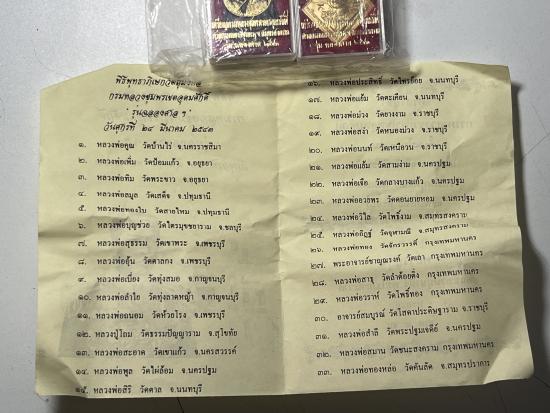 พิธีพุทธาภิเษกวัตถุมงคล
กรมหลวงชุมพรเขตอุดมศักดิ์
"รุ่นฉลองศาล ฯ"
วันศุกร์ที่ ๒๔ มีนาคม ๒๕๔๓
๑. หลวงพ่อคูณ วัดบ้านไร่ จ.นครราชสีมา
๒. หลวงพ่อเพิ่ม วัดป้อมแก้ว จ.อยุธยา
๓. หลวงพ่อทิม วัดพระขาว จ.อยุธยา
๔. หลวงพ่อสมูล วัดเสด็จ จ.ปทุมธานี
๕. หลวงพ่อทองใบ วัดสายไหม จ.ปทุมธานี
๖. หลวงพ่อบุญช่วย วัดโตรมุขขธาราม จ.ชลบุรี
๗. หลวงพ่อสุธรรม วัดเขาพระ จ.เพชรบุรี
๘. หลวงพ่ออุ้น วัดตาลกง จ.เพชรบุรี
๙. หลวงพ่อเบี่ยง วัดทุ่งสมอ จ.กาญจนบุรี
๑๐. หลวงพ่อลำไย วัดทุ่งลาดหญ้า จ.กาญจนบุรี
๑๑. หลวงพ่อถนอม วัดห้วยโรง จ.เพชรบุรี
๑๒. ปู่โถม วัดธรรมปัญญาราม จ.สุโขทัย
๑๓. หลวงพ่อสะอาด วัดเขาแก้ว จ.นครสวรรค์
๑๔. หลวงพ่อพูล วัดไผ่ล้อม จ.นครปฐม
๑๕. หลวงพ่อสิริ วัดตาล จ.นนทบุรี
๑๖. หลวงพ่อประสิทธิ์ วัดไทรน้อย จ.นนทบุรี
๑๗. หลวงพ่อแย้ม วัดตะเคียน จ.นนทบุรี
๑๘. หลวงพ่อม่วง วัดยางงาม จ.ราชบุรี
๑๙. หลวงพ่อสง่า วัดหนองม่วง จ.ราชบุรี
๒๐. หลวงพ่อนนท์ วัดเหนือวน จ.ราชบุรี
๒๑. หลวงพ่อแย้ม วัดสามง่าม จ.นครปฐม
๒๒. หลวงพ่อเจือ วัดกลางบางแก้ว จ.นครปฐม
๒๓. หลวงพ่ออวยพร วัดดอนยายหอม จ.นครปฐม
๒๔. หลวงพ่อวิไล วัดโพธิ์งาม จ.สมุทรสงคราม
๒๕. หลวงพ่ออิฏฐ์ วัดจุฬามณี จ.สมุทรสงคราม
๒๖. หลวงพ่อทอง วัดจักรวรรดิ์ กรุงเทพมหานคร
๒๗. พระอาจารย์ชาญณรงค์ วัดเถา กรุงเทพมหานคร
๒๘. หลวงพ่อสาธุ วัดลำต้อยติ่ง กรุงเทพมหานคร
๒๙. หลวงพ่อวราห์ วัดโพธิ์ทอง กรุงเทพมหานคร
๓๐. อาจารย์สมบูรณ์ วัดโสดาประดิษฐาราม จ.ราชบุรี
๓๑. หลวงพ่อสำลี วัดพระปฐมเจดีย์ จ.นครปฐม
๓๒. หลวงพ่อสมาน วัดชนะสงคราม กรุงเทพมหานคร
๓๓. หลวงพ่อทองหล่อ วัดคันลัด จ.สมุทรปราการ